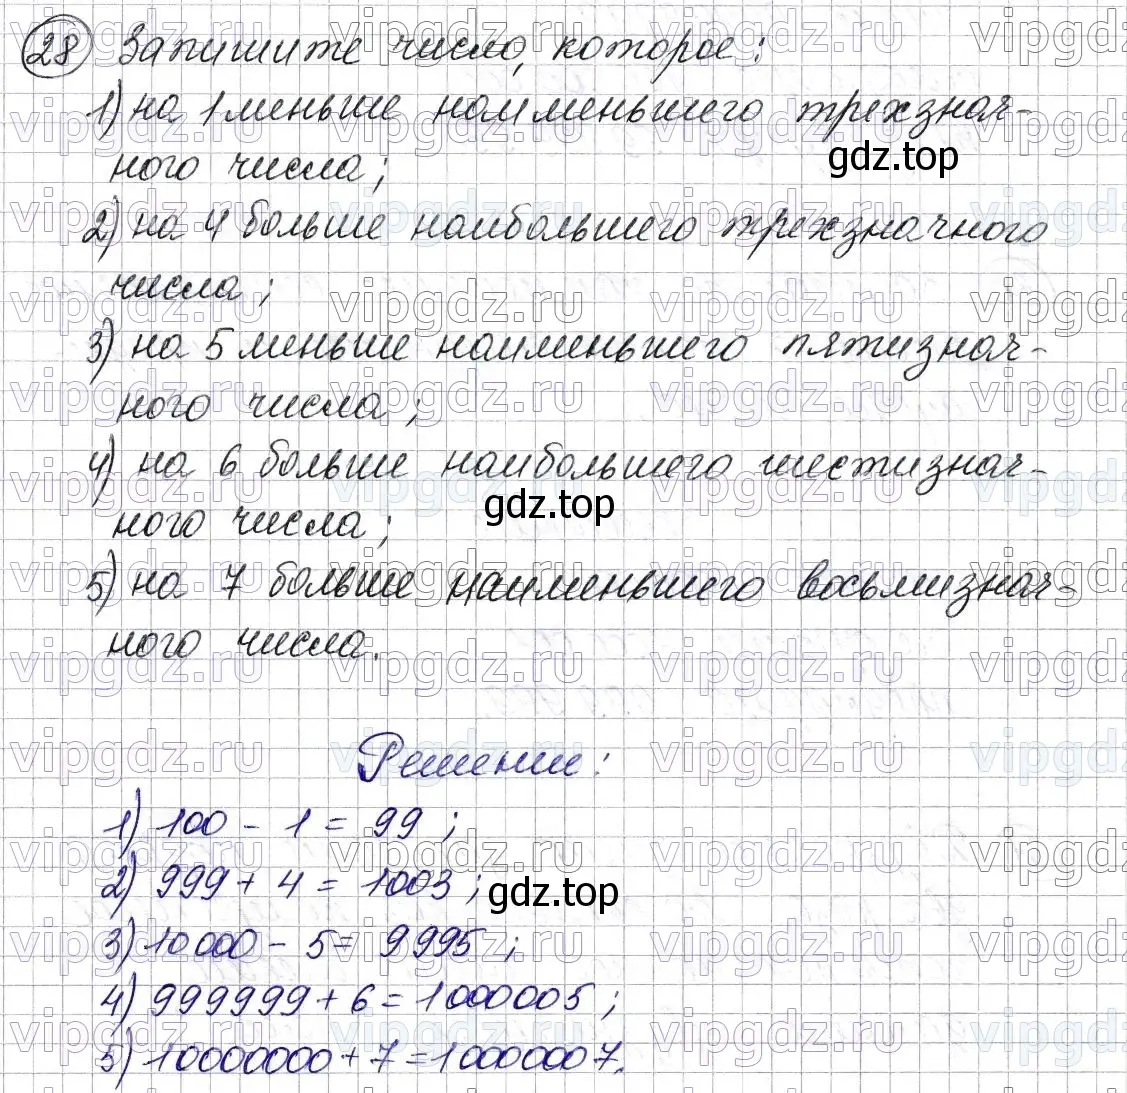 28 Запишите число, которое:
1) на 1 меньше наименьшего трехзнач-
ного числа;
2) на 4 больше наибольшего трехзначного
числа;
3) на 5 меньше наименьшего пятизнач-
ного числа;
4) на 6 больше наибольшего шестизнач-
ного числа;
5) на 7 больше наименьшего восьмизнач-
ного числа.
Решение:
1) 100 - 1 = 99;
2) 999 + 4 = 1003;
3) 10 000 - 5 = 9995;
4) 999999 + 6 = 1000005;
5) 10000000 + 7 = 10000007.
gdz.top
gdz.top
gdz.top
vipgdz.ru